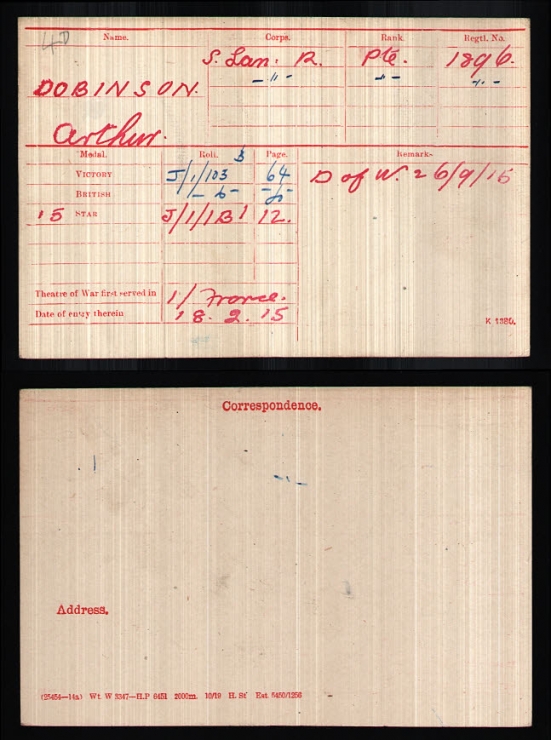 4D
Name. Corps. Rank. Regtl. No.
S. Lan. R. Pte. 1896.
DOBINSON. -"- -"- -"-
Arthur.
Medal. Roll. B Page. Remarks
VICTORY J/1/103 64 D of W. = 26/9/15
BRITISH -do- do
15 STAR J/1/1B1 12.
Theatre of War first served in 1/ France.
Date of entry therein 18. 2. 15
K 1380.
Correspondence.
Address.
(25454—14a) Wt. W 3347—H.P 6451 2000m. 10/19 H. St Est 5450/1256